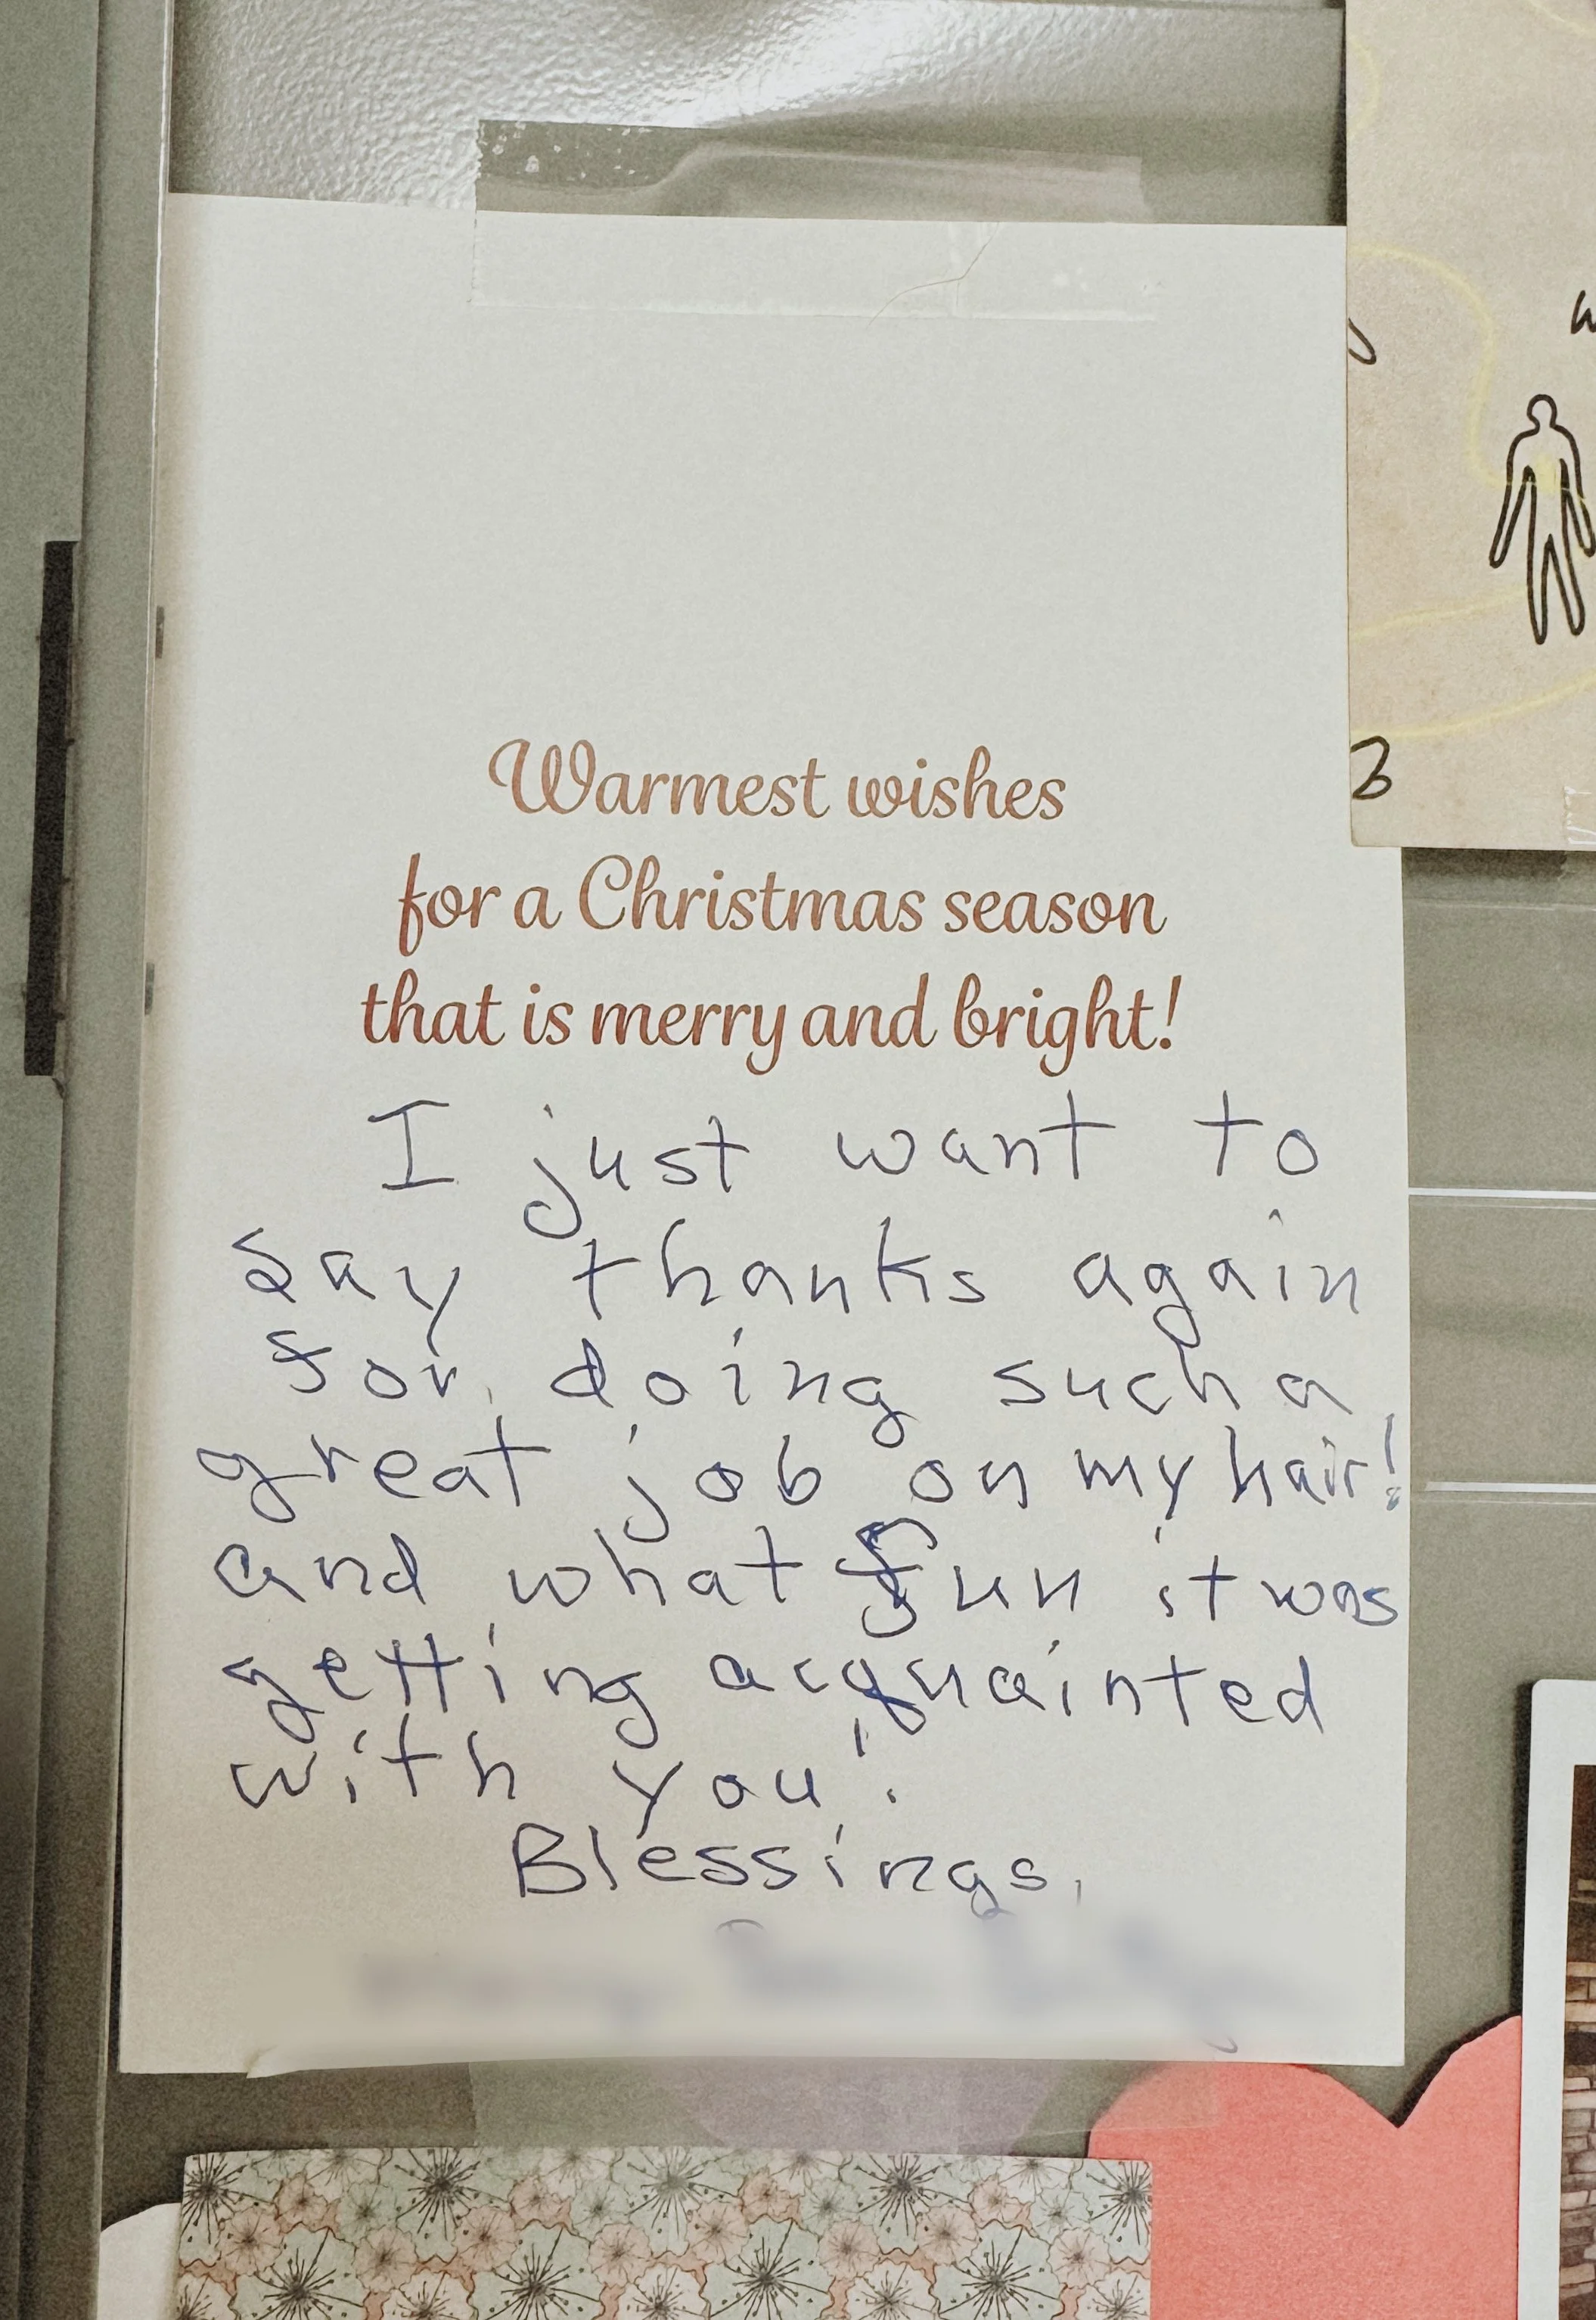 Warmest wishes
for a Christmas season
that is merry and bright!
I just want to
say thanks again
for doing such a
great job on my hair!
and what fun it was
getting acquainted
with you!
Blessings,
3